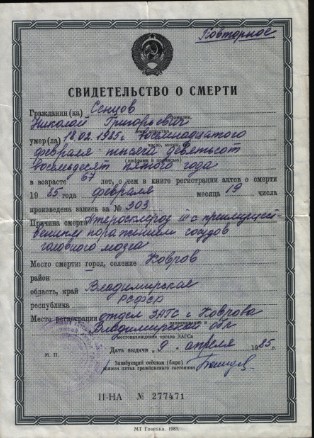 Повторное
СВИДЕТЕЛЬСТВО О СМЕРТИ
Гражданин(ка) Сенцов
Николай Григорьевич
умер(ла) 18.02.1985. Восемнадцатого
февраля тысяча девятьсот
восемьдесят пятого года
в возрасте 67 лет, о чем в книге регистрации актов о смерти
19 85 года февраля месяца 19 числа
произведена запись за № 303
Причина смерти Атеросклероз
поражением сосудов
головного мозга
Место смерти: город, селение Ковров
район
область, край Владимирская
республика РСФСР
Место регистрации отдел ЗАГС г. Коврова
Владимирской обл
Дата выдачи 9 апреля 1985
М. П.
II-НА № 277471